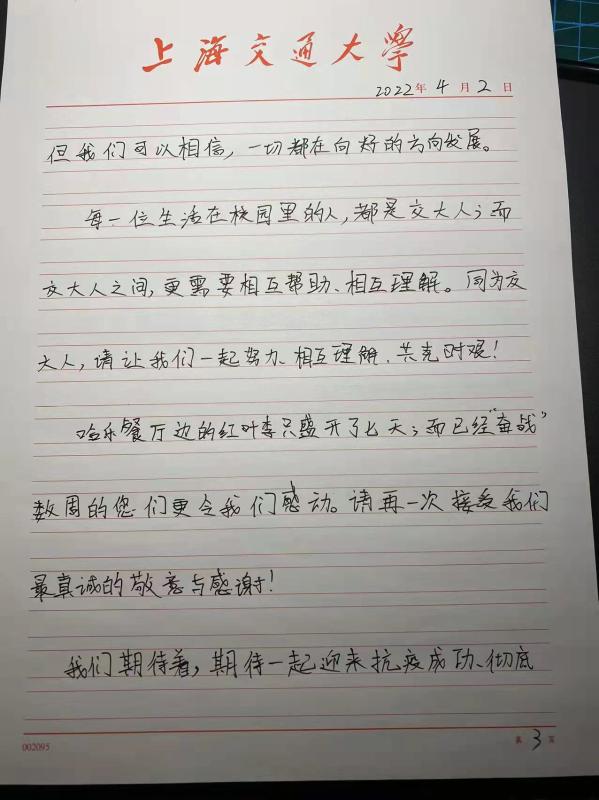 上海交通大學
2022年 4 月 2 日
但我们可以相信，一切都在向好的方向发展。
每一位生活在校园里的人，都是交大人；而
交大人之间，更需要相互帮助、相互理解。同为交
大人，请让我们一起努力、相互理解、共克时艰！
哈乐餐厅边的红叶李只盛开了七天；而已经“奋战”
数周的您们更令我们感动。请再一次接受我们
最真诚的敬意与感谢！
我们期待着，期待一起迎来抗疫成功、彻底
002095
第 3 页